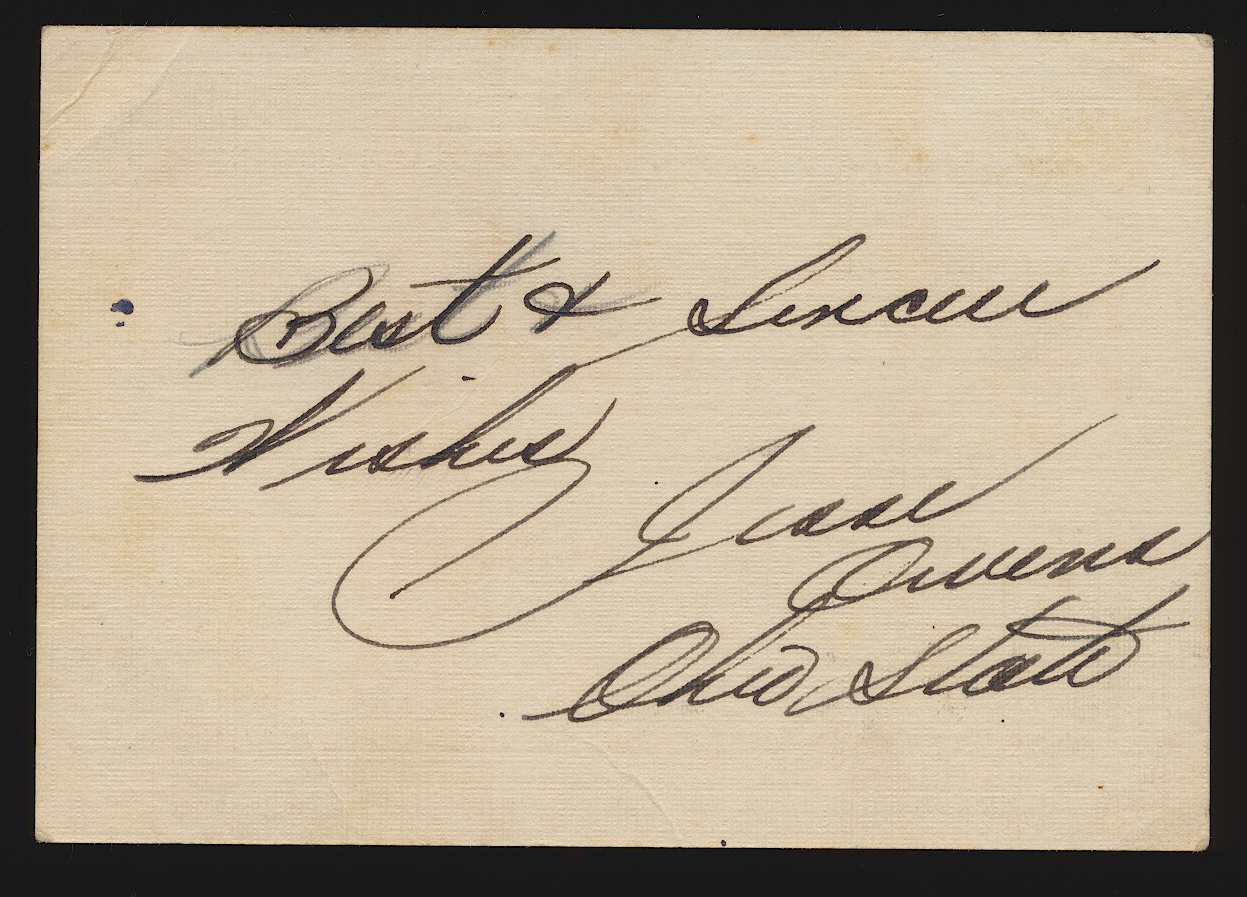 Best & Sincere
Wishes
Jesse
Owens
Ohio State